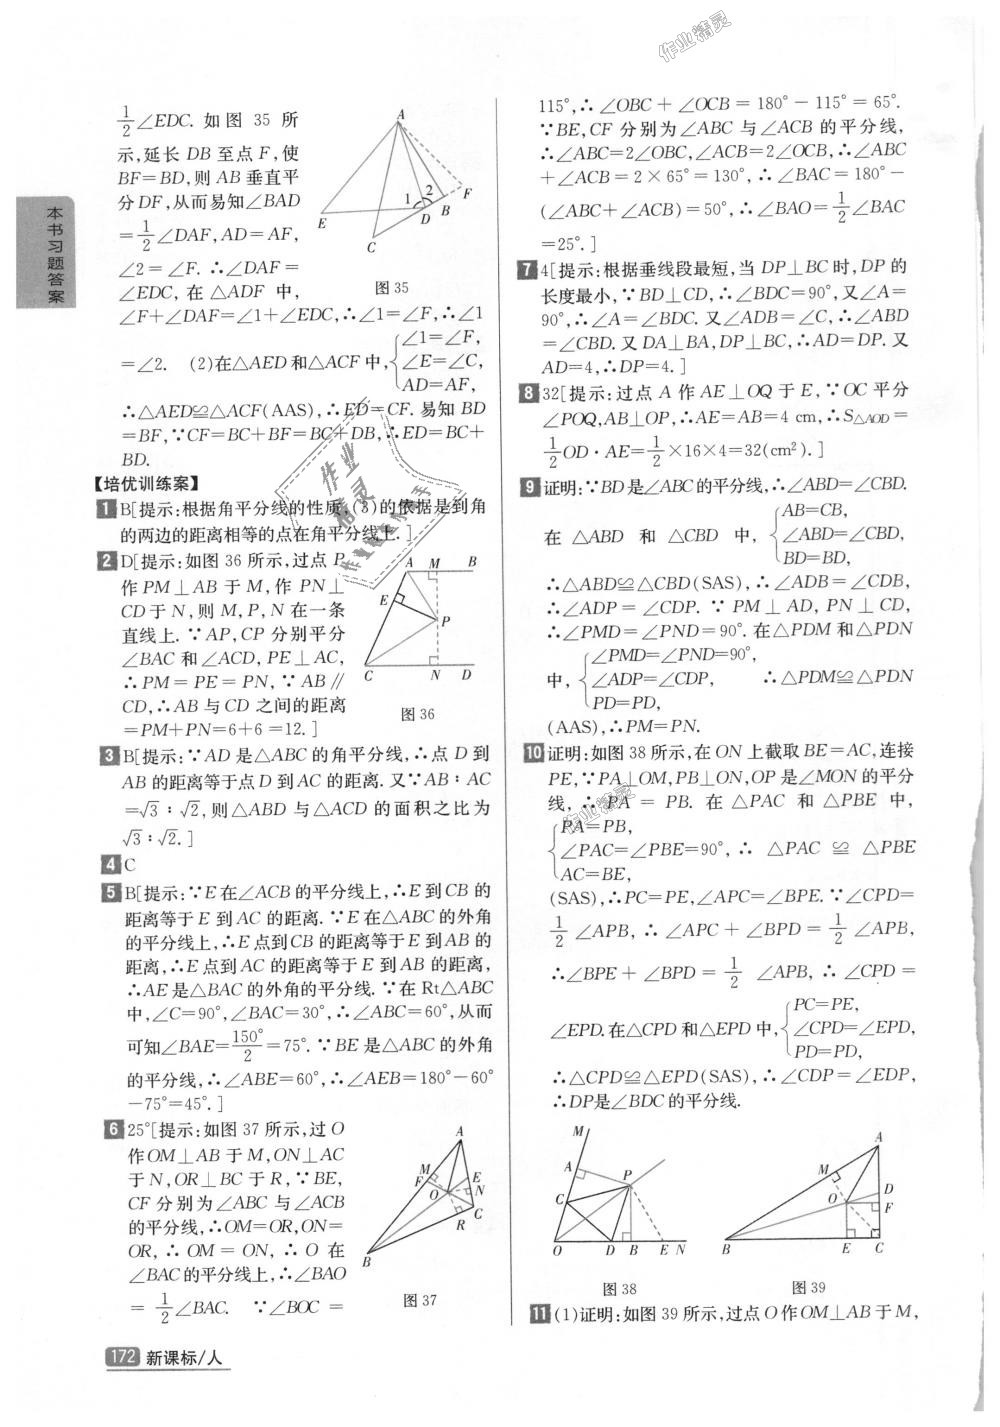 本书习题答案
1/2∠EDC. 如图 35 所
示,延长 DB 至点 F,使
BF=BD,则 AB 垂直平
分 DF,从而易知∠BAD
=1/2∠DAF,AD=AF,
∠2=∠F. ∴∠DAF=
∠EDC, 在 △ADF 中,
A
1
2
F
E
D
B
C
图 35
∠F+∠DAF=∠1+∠EDC,∴∠1=∠F,∴∠1
=∠2. (2)在△AED 和△ACF 中,{∠1=∠F,
∠E=∠C,
AD=AF,
∴△AED≌△ACF(AAS),∴ED=CF. 易知 BD
=BF,∵CF=BC+BF=BC+DB,∴ED=BC+
BD.
【培优训练案】
1 B[提示:根据角平分线的性质,(3)的依据是到角
的两边的距离相等的点在角平分线上.]
2 D[提示:如图 36 所示,过点 P
作 PM⊥AB 于 M,作 PN⊥
CD 于 N,则 M,P,N 在一条
直线上.∵AP,CP 分别平分
∠BAC 和∠ACD,PE⊥AC,
∴PM=PE=PN,∵AB∥
CD,∴AB 与 CD 之间的距离
=PM+PN=6+6=12.]
A M B
E
P
C N D
图 36
3 B[提示:∵AD 是△ABC 的角平分线,∴点 D 到
AB 的距离等于点 D 到 AC 的距离. 又∵AB∶AC
=√3∶√2,则△ABD 与△ACD 的面积之比为
√3∶√2.]
4 C
5 B[提示:∵E 在∠ACB 的平分线上,∴E 到 CB 的
距离等于 E 到 AC 的距离.∵E 在△ABC 的外角
的平分线上,∴E 点到 CB 的距离等于 E 到 AB 的
距离,∴E 点到 AC 的距离等于 E 到 AB 的距离,
∴AE 是△BAC 的外角的平分线.∵在 Rt△ABC
中,∠C=90°,∠BAC=30°,∴∠ABC=60°,从而
可知∠BAE=150°/2=75°.∵BE 是△ABC 的外角
的平分线,∴∠ABE=60°,∴∠AEB=180°-60°
-75°=45°.]
6 25°[提示:如图 37 所示,过 O
作 OM⊥AB 于 M,ON⊥AC
于 N,OR⊥BC 于 R,∵BE,
CF 分别为∠ABC 与∠ACB
的平分线,∴OM=OR,ON=
OR,∴OM=ON,∴O 在
∠BAC 的平分线上,∴∠BAO
=1/2∠BAC. ∵∠BOC=
A
M
F
E
O
N
C
R
B
图 37
172 新课标/人
115°,∴∠OBC+∠OCB=180°-115°=65°.
∵BE,CF 分别为∠ABC 与∠ACB 的平分线,
∴∠ABC=2∠OBC,∠ACB=2∠OCB,∴∠ABC
+∠ACB=2×65°=130°,∴∠BAC=180°-
(∠ABC+∠ACB)=50°,∴∠BAO=1/2∠BAC
=25°.]
7 4[提示:根据垂线段最短,当 DP⊥BC 时,DP 的
长度最小,∵BD⊥CD,∴∠BDC=90°,又∠A=
90°,∴∠A=∠BDC. 又∠ADB=∠C,∴∠ABD
=∠CBD. 又 DA⊥BA,DP⊥BC,∴AD=DP. 又
AD=4,∴DP=4.]
8 32[提示:过点 A 作 AE⊥OQ 于 E,∵OC 平分
∠POQ,AB⊥OP,∴AE=AB=4 cm,∴S△AOD=
1/2OD·AE=1/2×16×4=32(cm²).]
9 证明:∵BD 是∠ABC 的平分线,∴∠ABD=∠CBD.
在 △ABD 和 △CBD 中,{AB=CB,
∠ABD=∠CBD,
BD=BD,
∴△ABD≌△CBD(SAS),∴∠ADB=∠CDB,
∴∠ADP=∠CDP. ∵PM⊥AD,PN⊥CD,
∴∠PMD=∠PND=90°. 在△PDM 和△PDN
中,{∠PMD=∠PND=90°,
∠ADP=∠CDP,
PD=PD, ∴△PDM≌△PDN
(AAS),∴PM=PN.
10 证明:如图 38 所示,在 ON 上截取 BE=AC,连接
PE,∵PA⊥OM,PB⊥ON,OP 是∠MON 的平分
线,∴PA=PB. 在 △PAC 和 △PBE 中,
{PA=PB,
∠PAC=∠PBE=90°,
AC=BE, ∴△PAC≌△PBE
(SAS),∴PC=PE,∠APC=∠BPE.∵∠CPD=
1/2∠APB,∴∠APC+∠BPD=1/2∠APB,
∴∠BPE+∠BPD=1/2∠APB,∴∠CPD=
∠EPD. 在△CPD 和△EPD 中,{PC=PE,
∠CPD=∠EPD,
PD=PD,
∴△CPD≌△EPD(SAS),∴∠CDP=∠EDP,
∴DP 是∠BDC 的平分线.
M
A
P
C
O D B E N
图 38
A
M
O
D
F
B E C
图 39
11 (1)证明:如图 39 所示,过点 O 作 OM⊥AB 于 M,
作业精灵
作业精灵
作业精灵